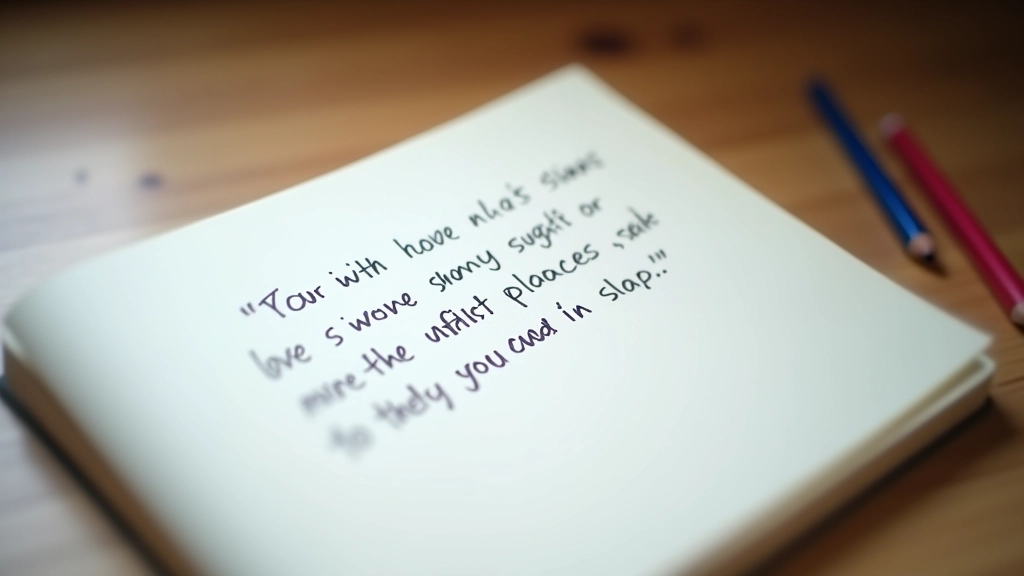 "Your with hove nha's sians
love s wone shomy sugati or
mire the ufilst plaaces , sale
to thedy you cuad in slap."